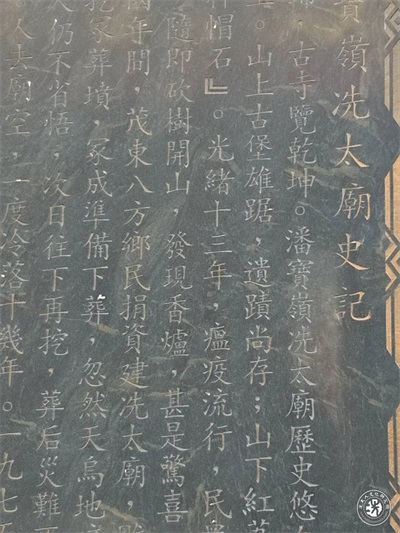 寶嶺冼太廟史記
歸，古寺覽乾坤。潘寶嶺冼太廟歷史悠
。山上古堡雄踞，遺蹟尚存；山下紅
帽石』。光緒十三年，瘟疫流行，民
隨即砍樹開山，發現香爐，甚是驚喜
年間，茂東八方鄉民捐資建冼太廟，
挖冢葬墳，冢成準備下葬，忽然天烏地
人仍不省悟，次日往下再挖，葬后災難
人去廟空，一度冷落十幾年。一九七